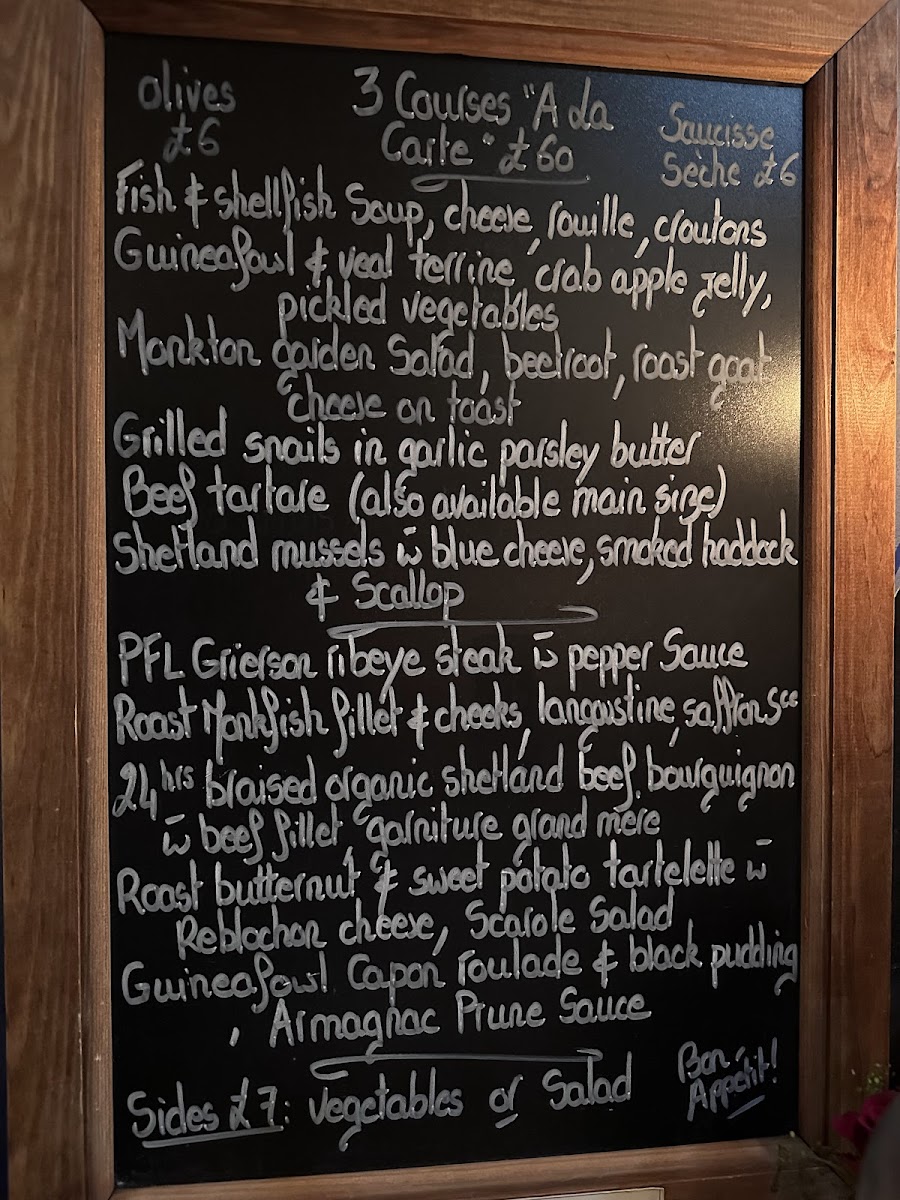 olives
£6
3 Courses "A La
Carte" £60
Saucisse
Sèche £6
Fish & shellfish Soup, cheese, rouille, croutons
Guineafowl & veal terrine, crab apple Jelly,
pickled vegetables
Monkton garden Salad, beetroot, roast goat
cheese on toast
Grilled snails in garlic parsley butter
Beef tartare (also available main size)
Shetland mussels w̄ blue cheese, smoked haddock
& Scallop
PFL Grierson ribeye steak w̄ pepper Sauce
Roast Monkfish fillet & cheeks, langoustine, saffron Sce
24hrs braised organic shetland beef bourguignon
w̄ beef fillet, garniture grand mere
Roast butternut & sweet potato tartelette w̄
Reblochon cheese, Scarole Salad
Guineafowl Capon roulade & black pudding
, Armagnac Prune Sauce
Sides £7: vegetables or Salad
Bon
Appétit!